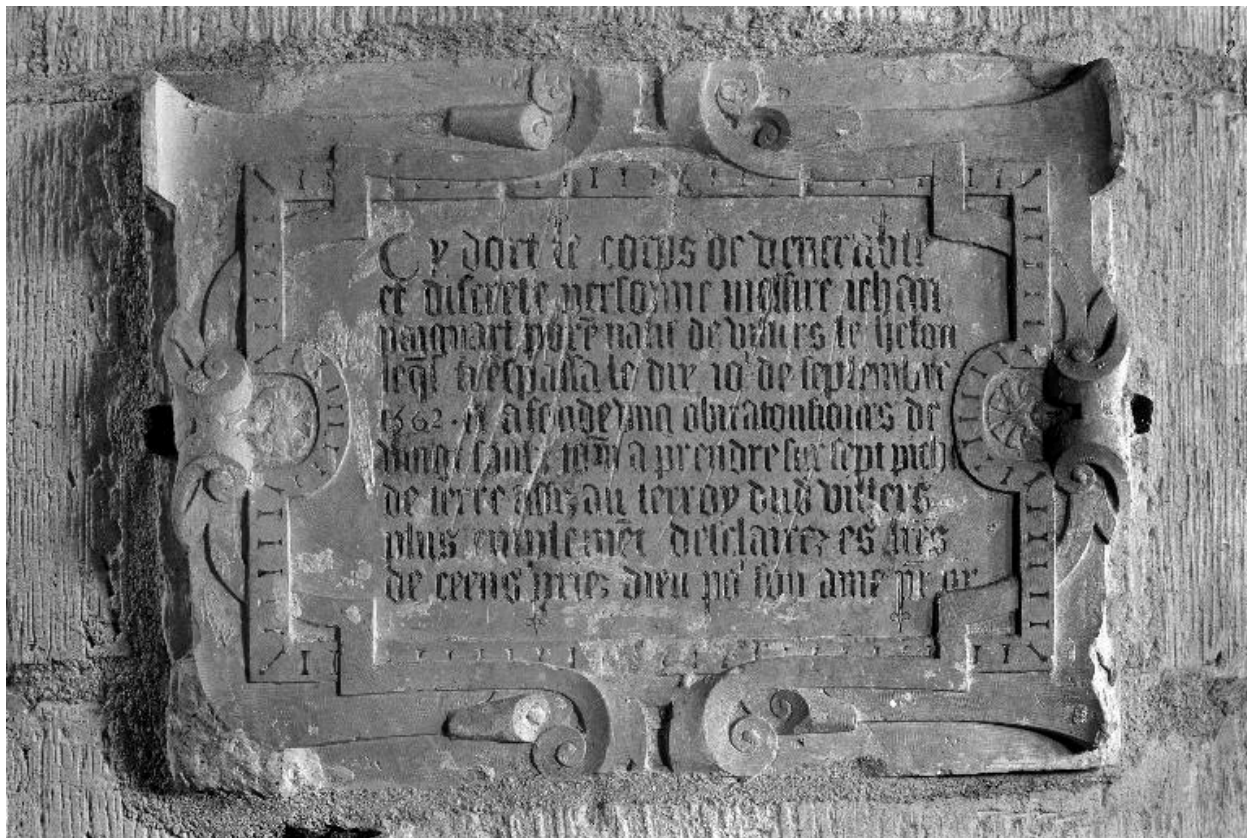 Cy dort le corps de venerable
et discrete personne messire iehan
pb̄re natif de villiers le
leq̄l trespassa le dix 10e de septembre
1562 . et a fonde ung obit a tousiours de
vingt soulz à prendre sur sept pich
de terre assiz au terroy dud villiers
plus desclairez es
de ceens priez dieu po son ame